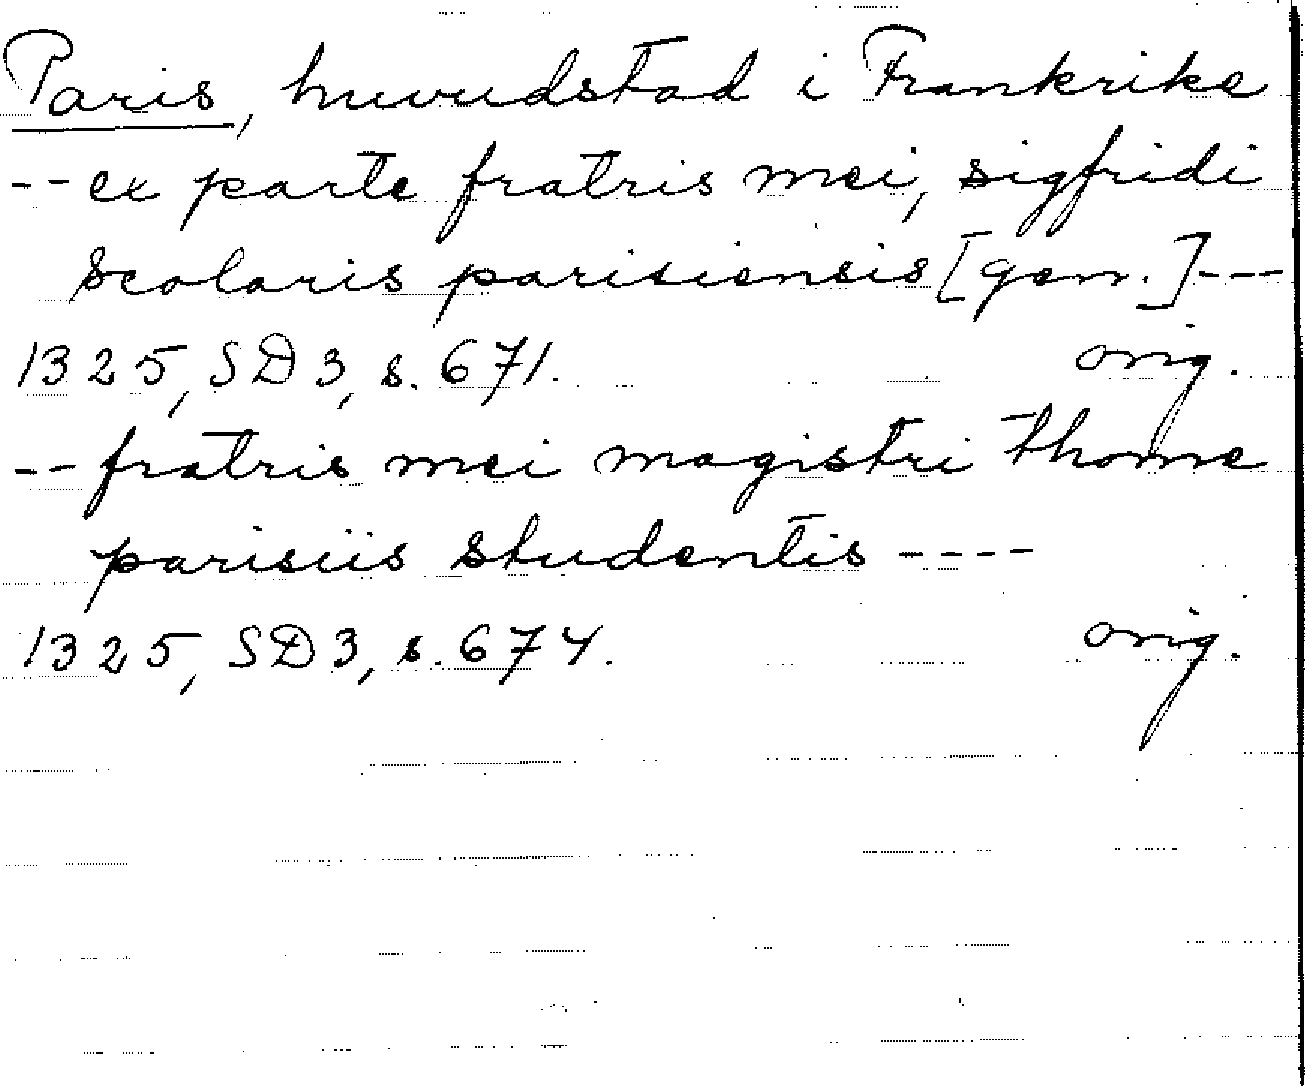 Paris, huvudstad i Frankrike
-- ex parte fratris mei, sigfridi
scolaris parisiensis [gen.] ---
1325, SD 3, s. 671. orig.
-- fratris mei magistri thome
parisiis studentis ----
1325, SD 3, s. 674. orig.